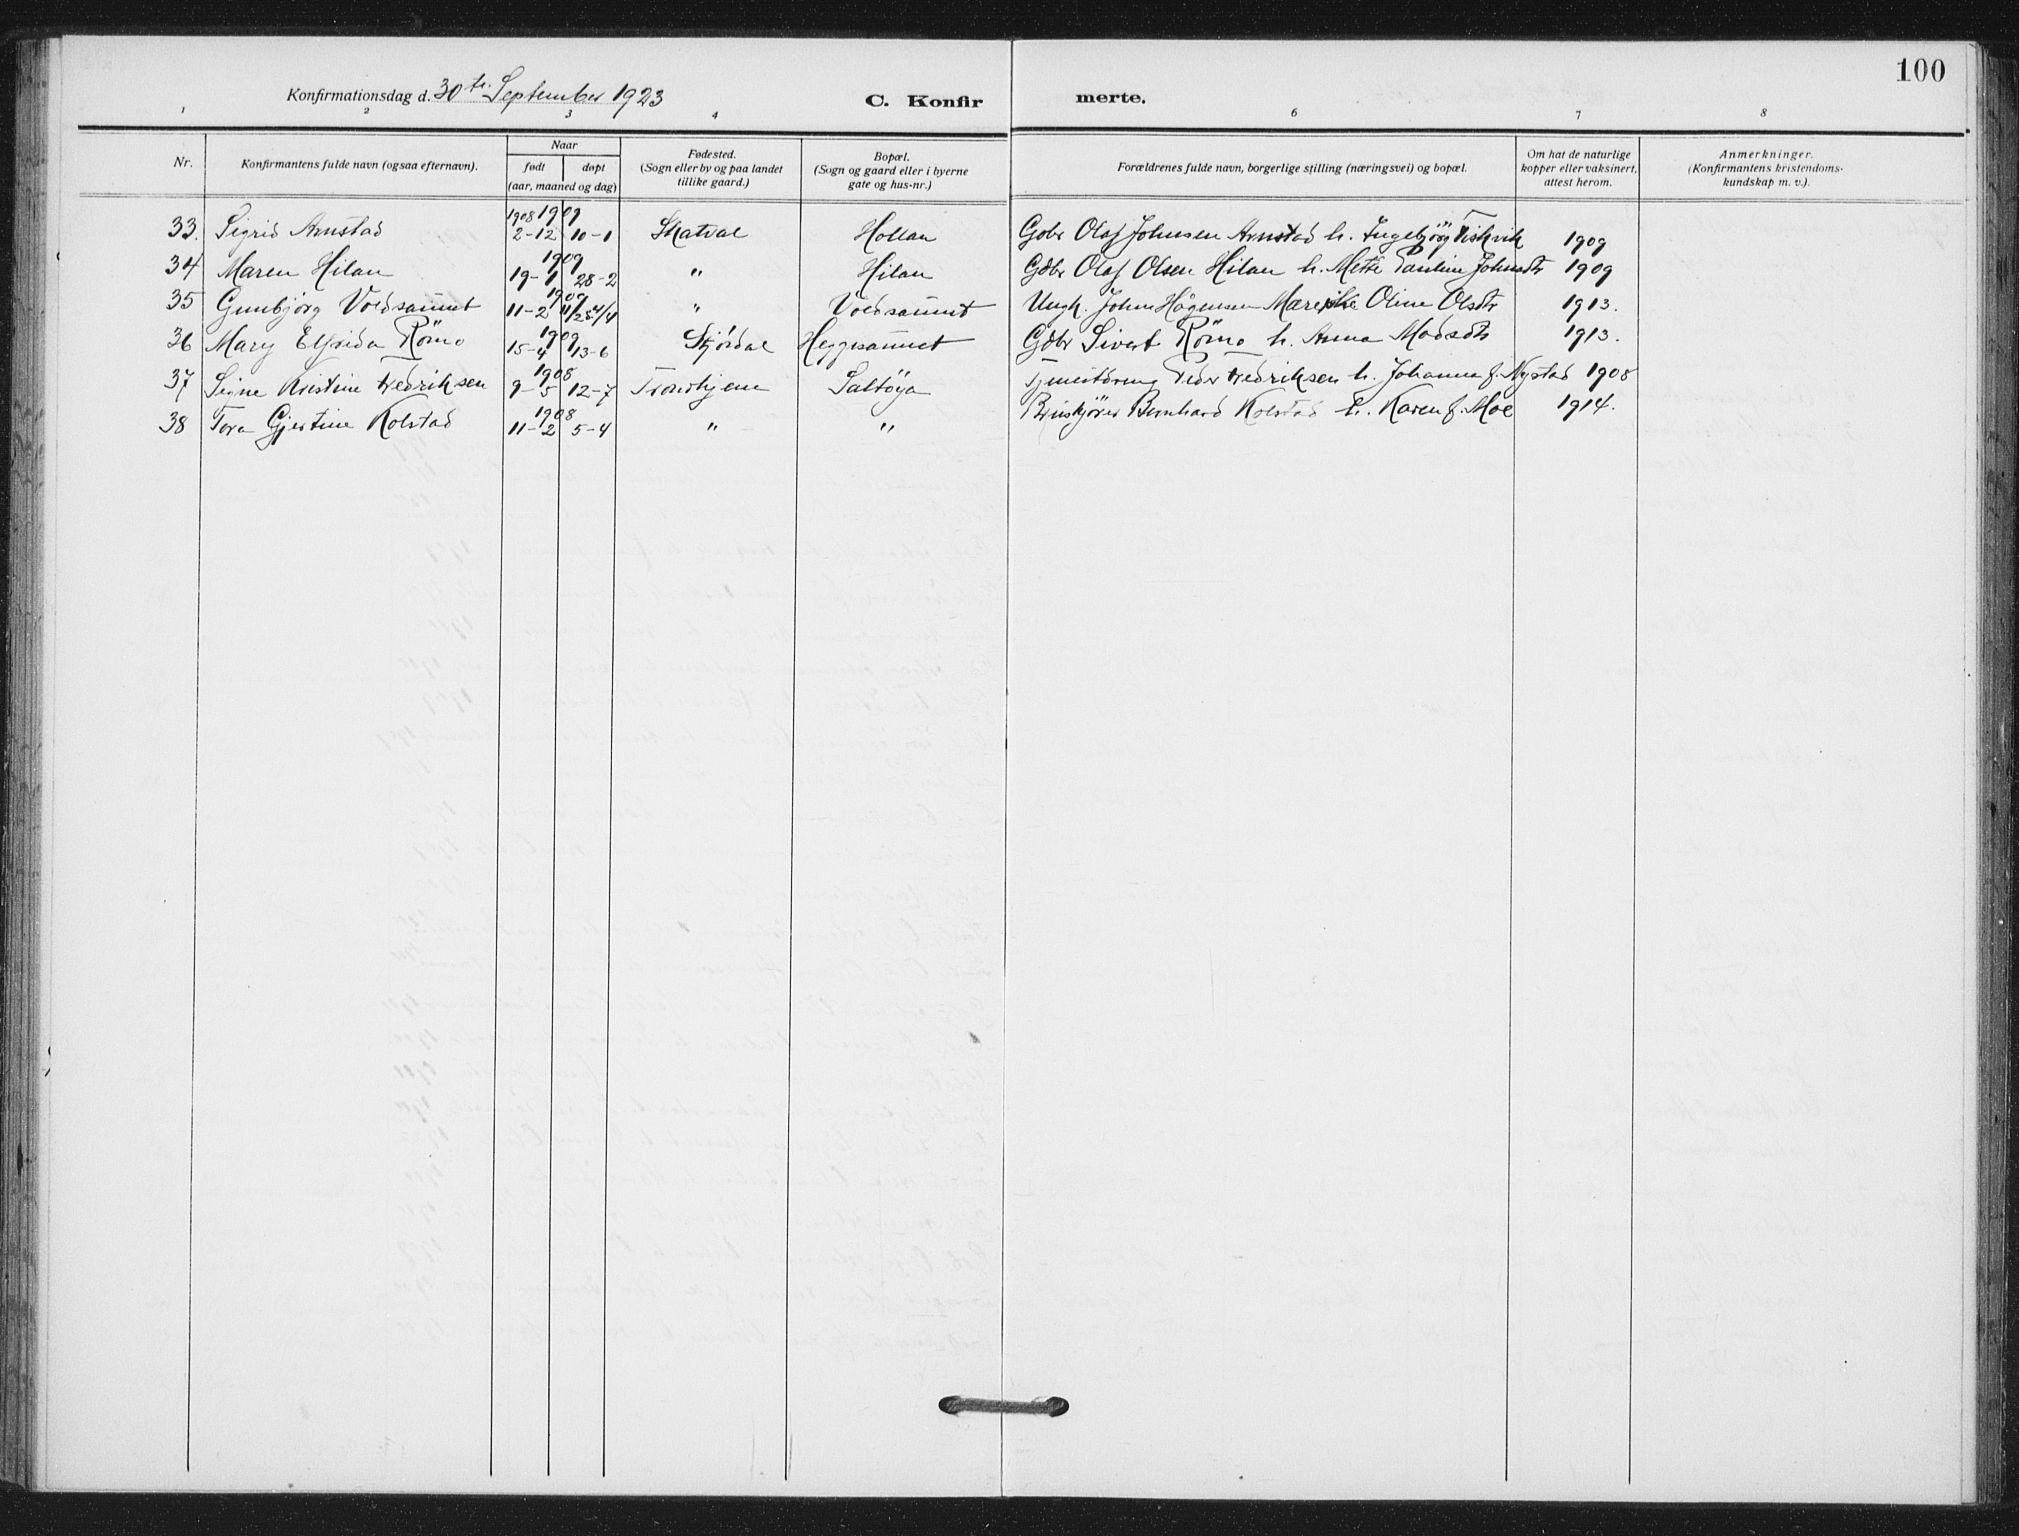 100
Konfirmationsdag d. 30te September 1923 C. Konfir merte.
1 2 3 4 6 7 8
Nr. Konfirmantens fulde navn (ogsaa efternavn). Naar født døpt (aar, maaned og dag) Fødested. (Sogn eller by og paa landet tillike gaard.) Bopæl. (Sogn og gaard eller i byerne gate og hus-nr.) Forældrenes fulde navn, borgerlige stilling (næringsvei) og bopæl. Om hat de naturlige kopper eller vaksinert, attest herom. Anmerkninger. (Konfirmantens kristendoms-kundskap m. v.).
33. Sigrid Arnstad 1908 2-12 1909 10-1 Skatval Hollan Gdbr Olaf Johnsen Arnstad h. Ingebjörg Fiskvik 1909
34 Maren Hilan 1909 19-1 28-2 " Hilan Gdbr Olaf Olsen Hilan h. Mette Pauline Johnsdtr 1909
35 Gunbjörg Voldsaunet 1909 11-2 " Voldsaunet Ungk. John Hågensen Oline Olsdtr 1913.
36 Mary Elfrida Römo 1909 15-4 13-6 Skjördal Heggesaunet Gdbr Sivert Römo h. Anna Madsdtr 1913.
37 Signe Kristine Fredriksen 1908 9-5 12-7 Trondhjem Saltöya Peder Fredriksen h. Johanna f. Nystad 1908
38 Tora Gjertine Kolstad 1908 11-2 5-4 " " Bernhard Kolstad h. Karen f. Moe 1914.